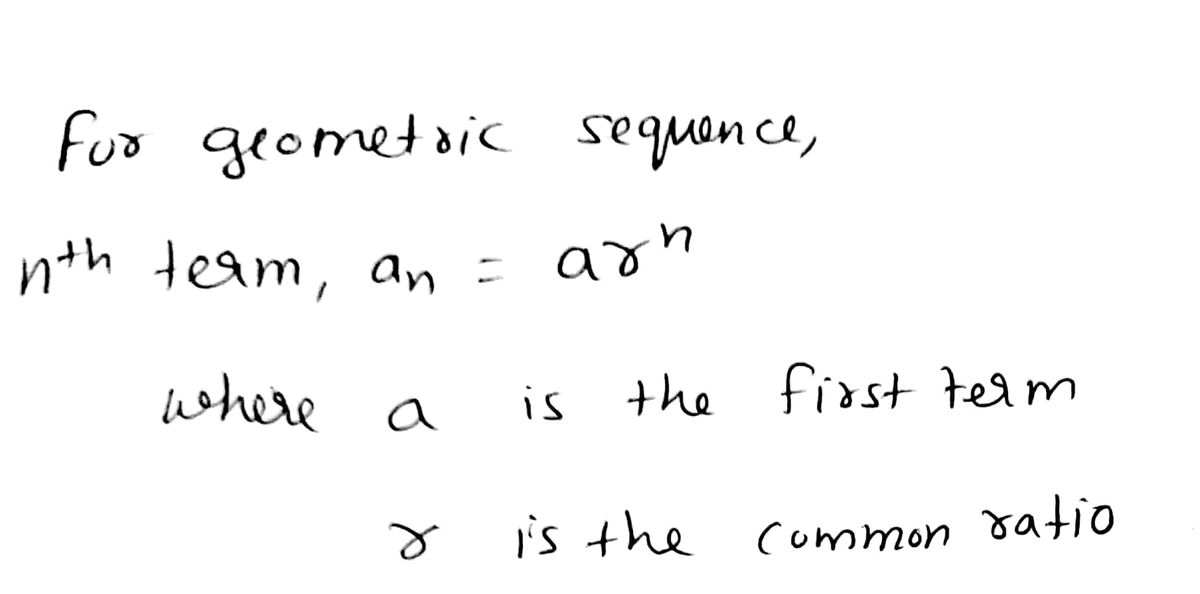 For geometric sequence,
nth term, an = arⁿ
where a is the first term
r is the common ratio